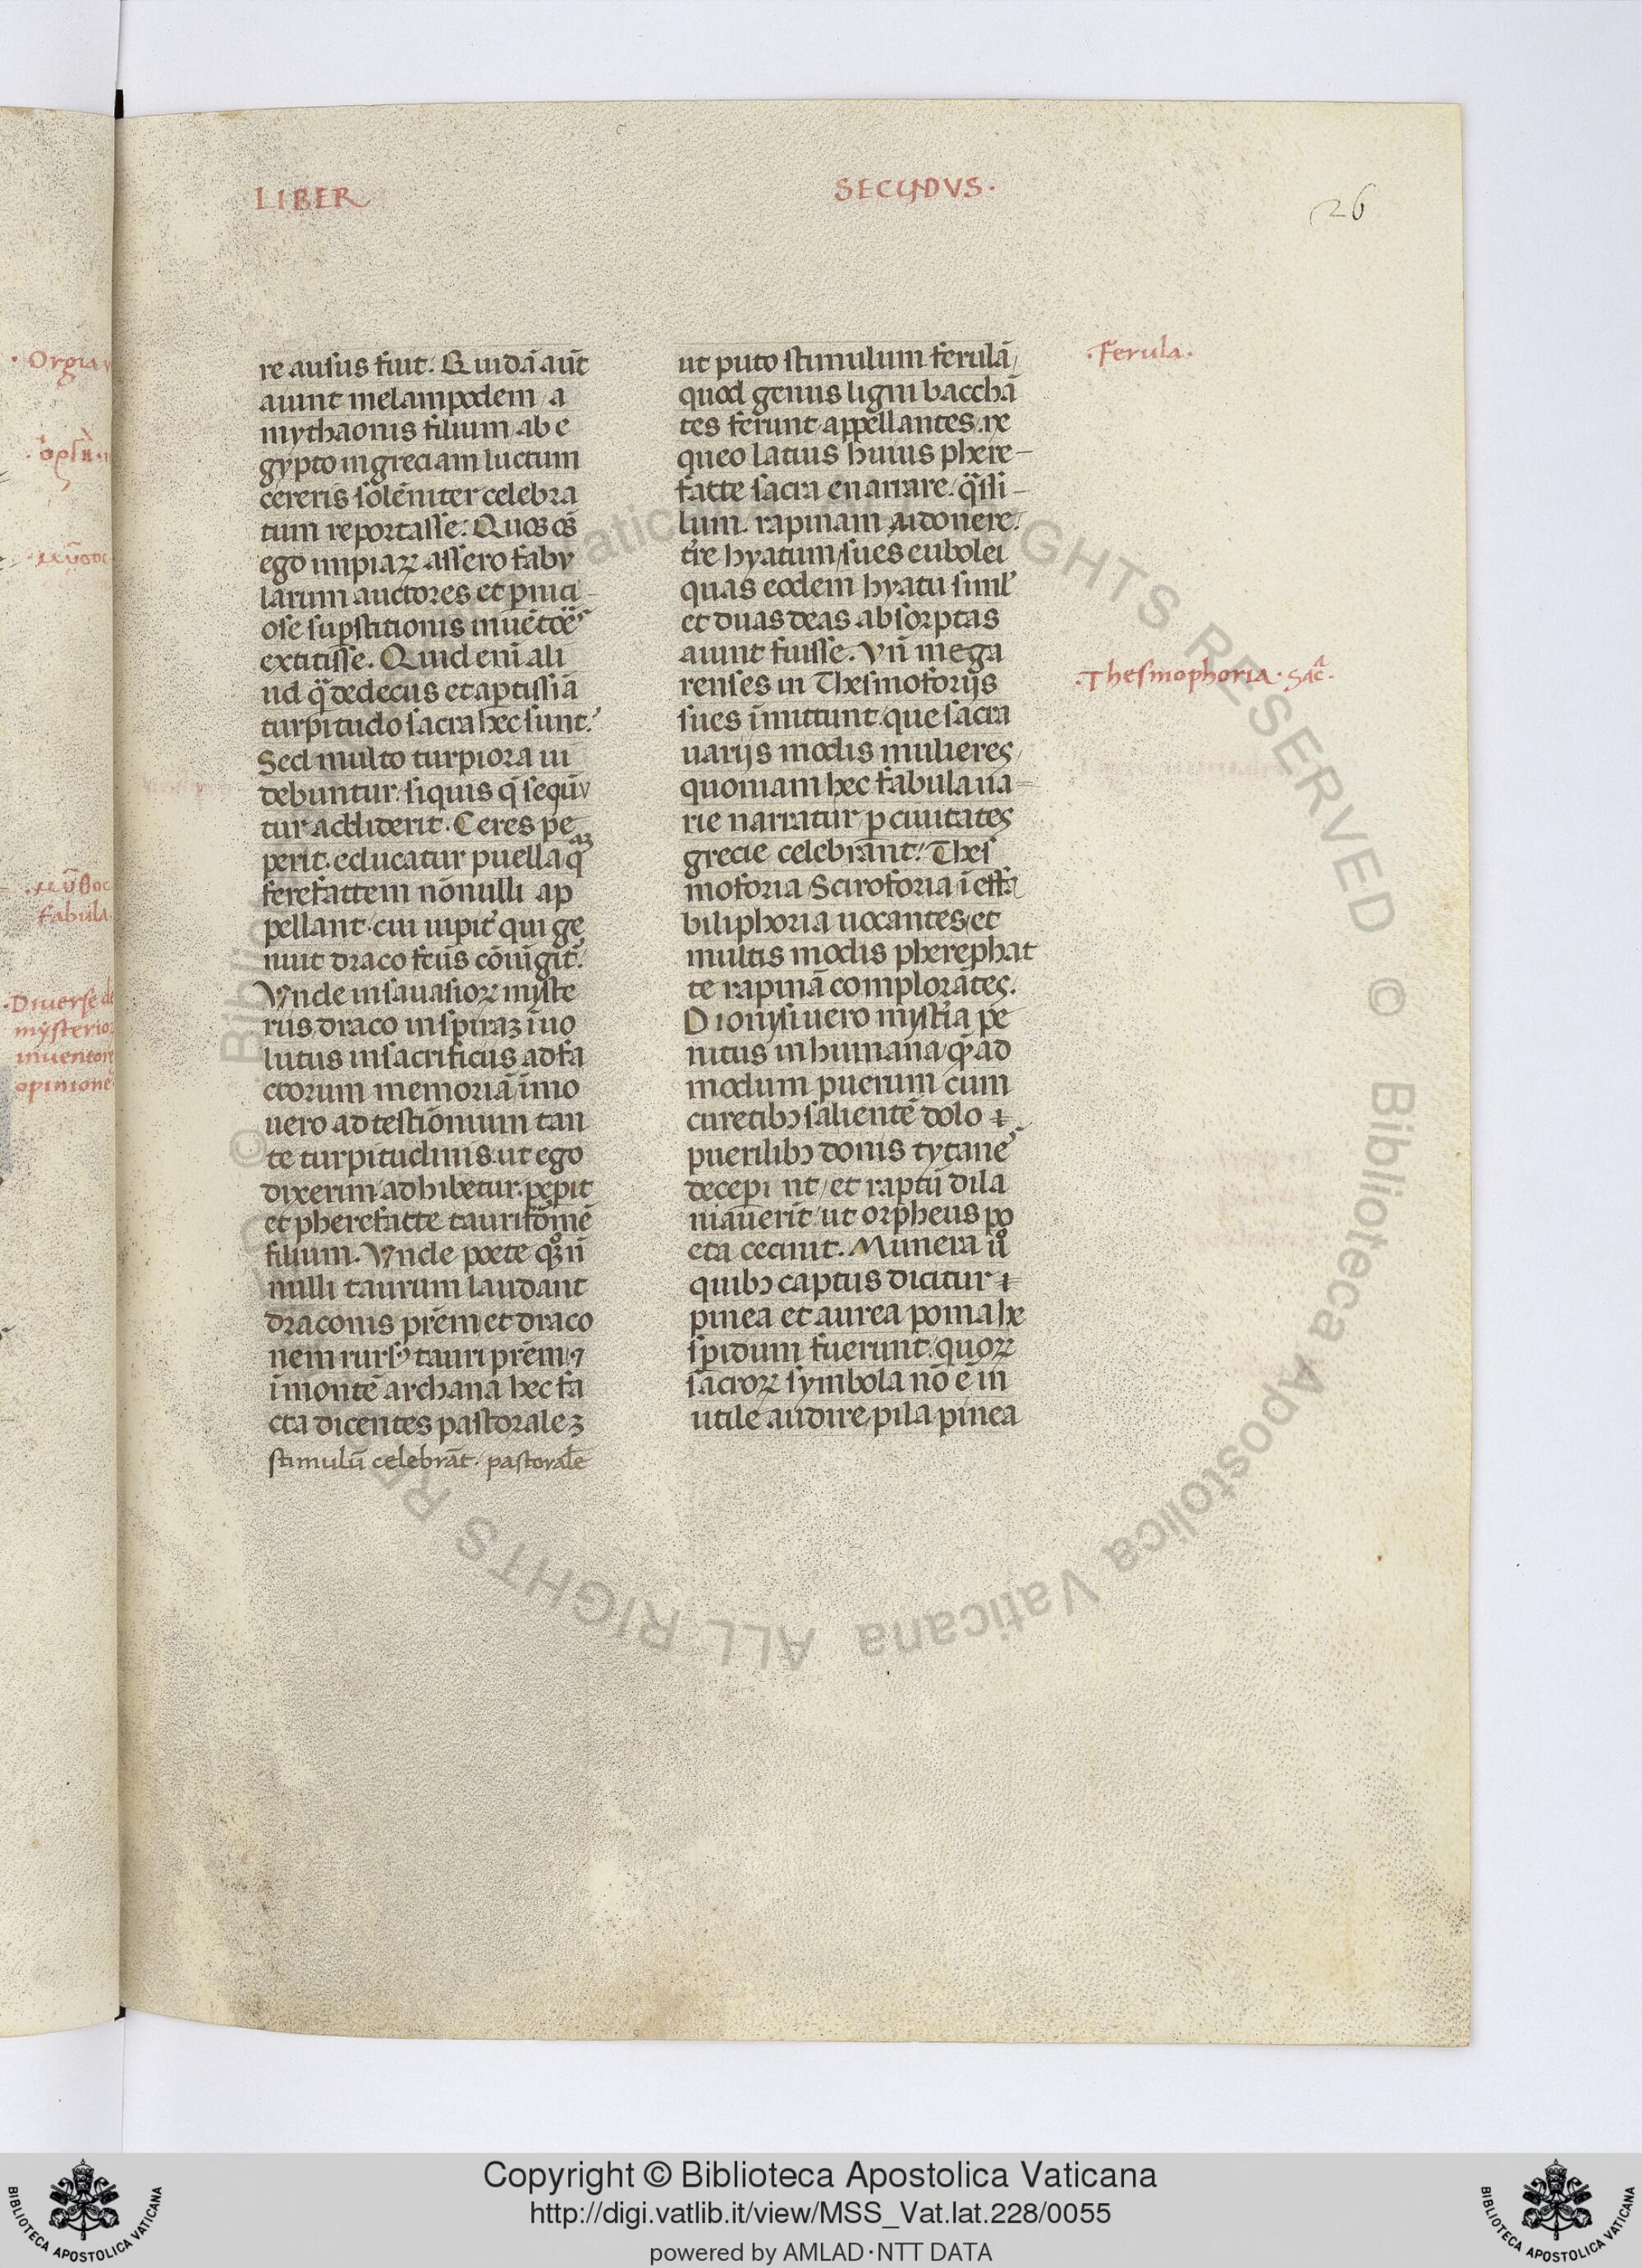 LIBER
SECVNDVS.
26
re ausus fuit. Quidã aut̃
aiunt melampodem a
mythaonis filium ab e
gypto in greciam luctum
cereris solẽniter celebra
tum reportasse. Quos oẽs
ego impiaꝝ assero fabu
larum auctores et ꝑnici
ose suꝑstitionis inuẽtoẽs
extitisse. Quid eni ali
ud q̃ dedecus et aptissiã
turpitudo sacra hec sunt.
Sed multo turpiora ui
debuntur siquis q̃ sequũ
tur addiderit. Ceres pe
perit educatur puella quaꝫ
ferefattem nõnulli ap
pellant cui iupit̃ qui ge
nuit draco fc̃us cõiũgit̃.
Vnde in sauasioꝝ myste
riis draco in spiraꝫ ĩuo
lutus in sacrificiis ad fa
ctorum memoriã ĩmo
uero ad testiõnium tan
te turpitudinis ut ego
dixerim adhibetur. peꝑit
et pherefatte taurifõmẽ
filium. Vnde poete q̃ nõ
nulli taurum laudant
draconis prẽm et draco
nem rursꝰ tauri prẽm ⁊
ĩ monte archana hec fa
cta dicentes pastoraleꝫ
stimulũ celebrãt. pastorale
ut puto stimulum ferulã
quod genus ligni bacchã
tes ferunt appellantes. ne
queo latius huius phere-
fatte sacra enarrare. q̃sil-
lum. rapinam aidonere.
tr̃e hyatum sues eubolei
quas eodem hyatu siml̃
et duas deas absorptas
aiunt fuisse. Vñ mega
renses in Thesmoforijs
sues ĩmittunt. que sacra
uarijs modis mulieres
quoniam hec fabula ua-
rie narratur ꝑ ciuitates
grecie celebrant. Thes
moforia Sciroforia ĩ effa
biliphoria uocantes et
multis modis pherephat
te rapinã complorãtes.
Dionysi uero mystr̃ia pe
nitus inhumana q̃ ad
modum puerum cum
curetibꝫ salientẽ dolo ⁊
puerilibꝫ donis tytanes
decepint et raptũ dila
niauerit ut orpheus po
eta cecinit. Munera ũo
quibꝫ captus dicitur ⁊
pinea et aurea poma he
spidum fuerunt. quoꝝ
sacroꝝ symbola nõ ẽ in
utile audire pila pinea
.Ferula.
.Thesmophoria. sac̃a.
.Orgia
.μῦθος
Fabula.
.Diuerse de
mysterioꝝ
inuentore
opinione
Copyright © Biblioteca Apostolica Vaticana
http://digi.vatlib.it/view/MSS_Vat.lat.228/0055
powered by AMLAD·NTT DATA
BIBLIOTECA APOSTOLICA VATICANA
BIBLIOTECA APOSTOLICA VATICANA
© Biblioteca Apostolica Vaticana ALL RIGHTS RESERVED